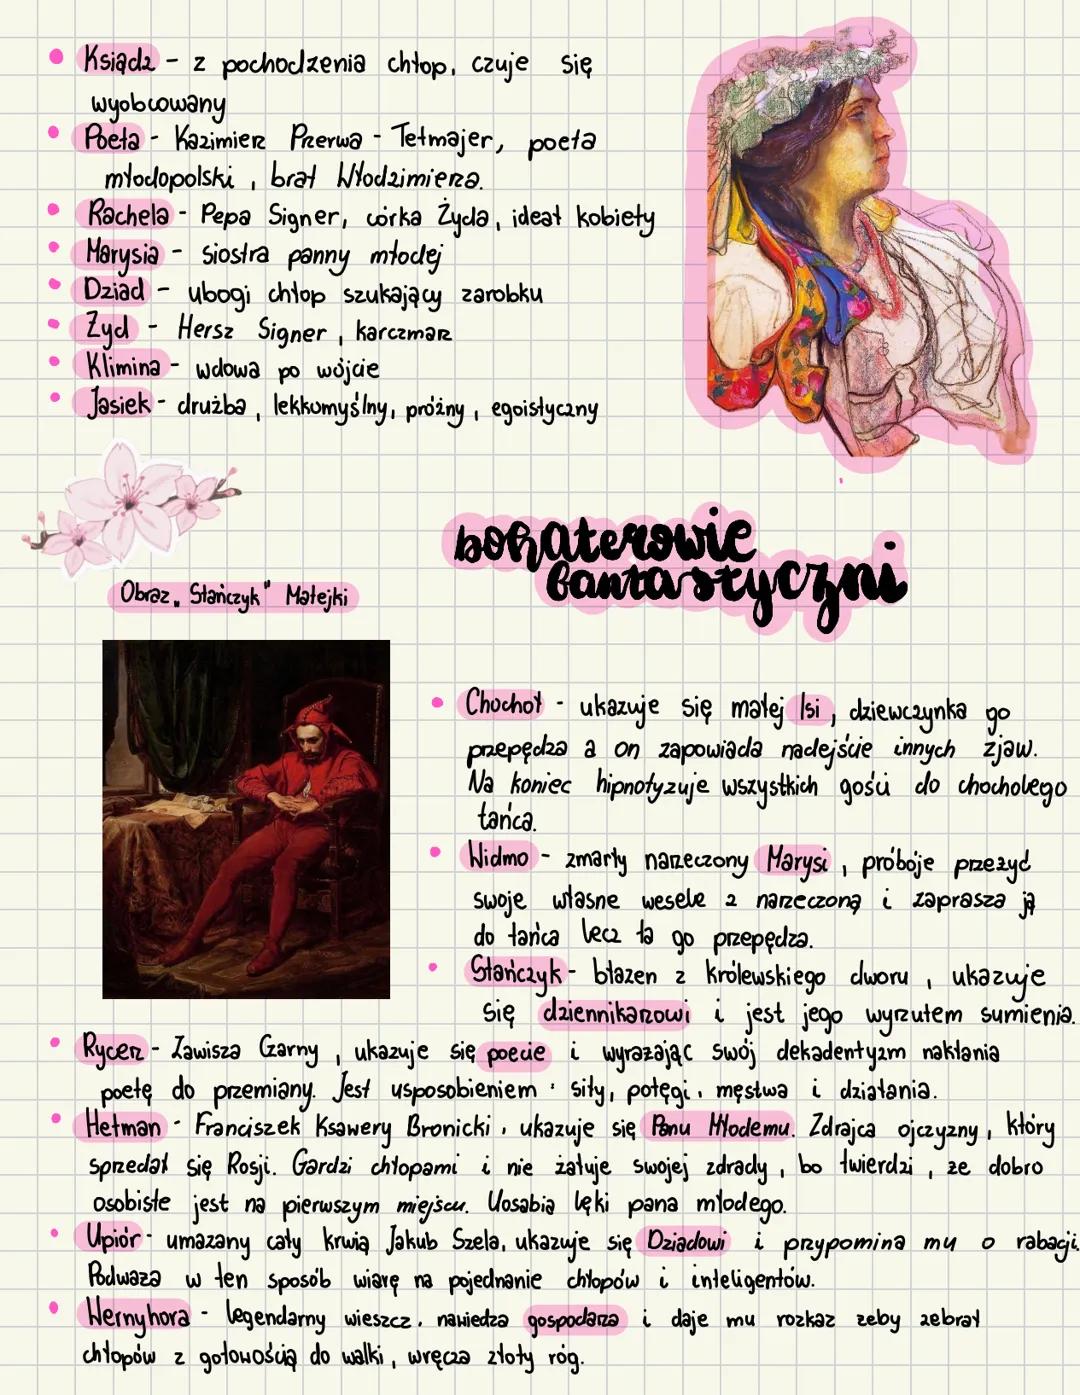 Ksiądz - z pochodzenia chłop, czuje się
wyobcowany
Poeta - Kazimierz Przerwa - Tetmajer, poeta
młodopolski, brat Włodzimierza.
Rachela - Pepa Signer, córka Żyda, ideał kobiety
Marysia - siostra panny młodej
Dziad - ubogi chłop szukający zarobku
Żyd - Hersz Signer, karczmarz
Klimina - wdowa po wójcie
Jasiek - drużba, lekkomyślny, próżny, egoistyczny
bohaterowie
fantastyczni
Obraz „Stańczyk" Matejki
Chochoł - ukazuje się małej Isi, dziewczynka go
przepędza a on zapowiada nadejście innych zjaw.
Na koniec hipnotyzuje wszystkich gości do chocholego
tańca.
Widmo - zmarły narzeczony Marysi, próbóje przeżyć
swoje własne wesele z narzeczoną i zaprasza ją
do tańca lecz ta go przepędza.
Stańczyk - błazen z królewskiego dworu, ukazuje
się dziennikarzowi i jest jego wyrzutem sumienia.
Rycerz - Zawisza Czarny, ukazuje się poecie i wyrażając swój dekadentyzm nakłania
poetę do przemiany. Jest usposobieniem : siły, potęgi, męstwa i działania.
Hetman - Franciszek Ksawery Bronicki, ukazuje się Panu Młodemu. Zdrajca ojczyzny, który
sprzedał się Rosji. Gardzi chłopami i nie żałuje swojej zdrady, bo twierdzi, że dobro
osobiste jest na pierwszym miejscu. Uosabia lęki pana młodego.
Upiór - umazany cały krwią Jakub Szela, ukazuje się Dziadowi i przypomina mu o rabacji.
Podważa w ten sposób wiarę na pojednanie chłopów i inteligentów.
Wernyhora - legendarny wieszcz, nawiedza gospodarza i daje mu rozkaz żeby zebrał
chłopów z gotowością do walki, wręcza złoty róg.